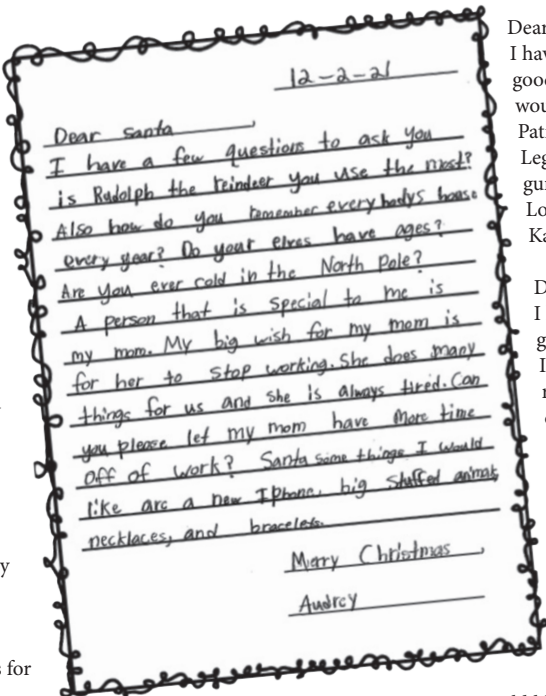 12-2-21
Dear Santa,
I have a few questions to ask you
is Rudolph the reindeer you use the most?
Also how do you remember everybodys house
every year? Do your elves have ages?
Are you ever cold in the North Pole?
A person that is special to me is
my mom. My big wish for my mom is
for her to stop working. She does many
things for us and she is always tired. Can
you please let my mom have more time
off of work? Santa some things I would
like are a new Iphone, big stuffed animal,
necklaces, and bracelets.
Merry Christmas,
Audrey
Dear
I hav
good
wou
Pat
Leg
gu
Lo
Ka
D
I
g
I
y
s for